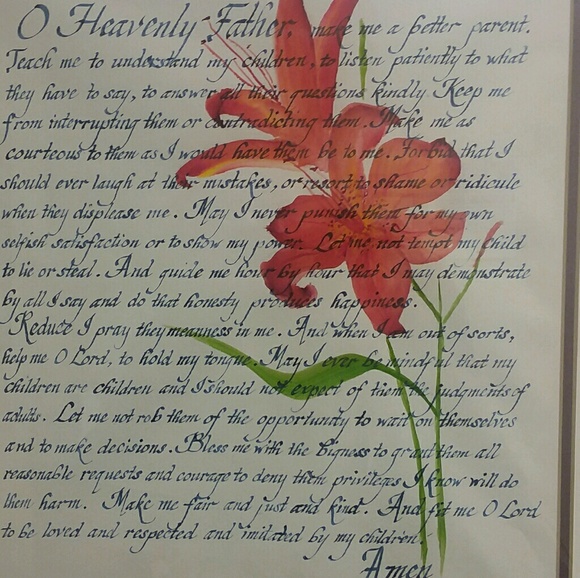 O Heavenly Father, make me a better parent.
Teach me to understand my children, to listen patiently to what
they have to say, to answer all their questions kindly. Keep me
from interrupting them or contradicting them. Make me as
courteous to them as I would have them be to me. Forbid that I
should ever laugh at their mistakes, or resort to shame or ridicule
when they displease me. May I never punish them for my own
selfish satisfaction or to show my power. Let me not tempt my child
to lie or steal. And guide me hour by hour that I may demonstrate
by all I say and do that honesty produces happiness.
Reduce I pray they meanness in me. And when I am out of sorts,
help me O Lord, to hold my tongue. May I ever be mindful that my
children are children and I should not expect of them the judgments of
adults. Let me not rob them of the opportunity to wait on themselves
and to make decisions. Bless me with the bigness to grant them all
reasonable requests and courage to deny them privileges I know will do
them harm. Make me fair and just and kind. And fit me O Lord
to be loved and respected and imitated by my children.
Amen